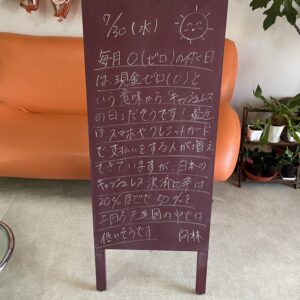 7/30(水)
毎月0(ゼロ)の付く日
は、現金ゼロ(0)と
いう意味から「キャッシュレス
の日」だそうです!最近
はスマホやクレジットカード
で支払いをする人が増え
てきていますが、日本の
キャッシュレス決済比率は
20%ほどで50%を
上回る
国の中では
低いそうです 向林